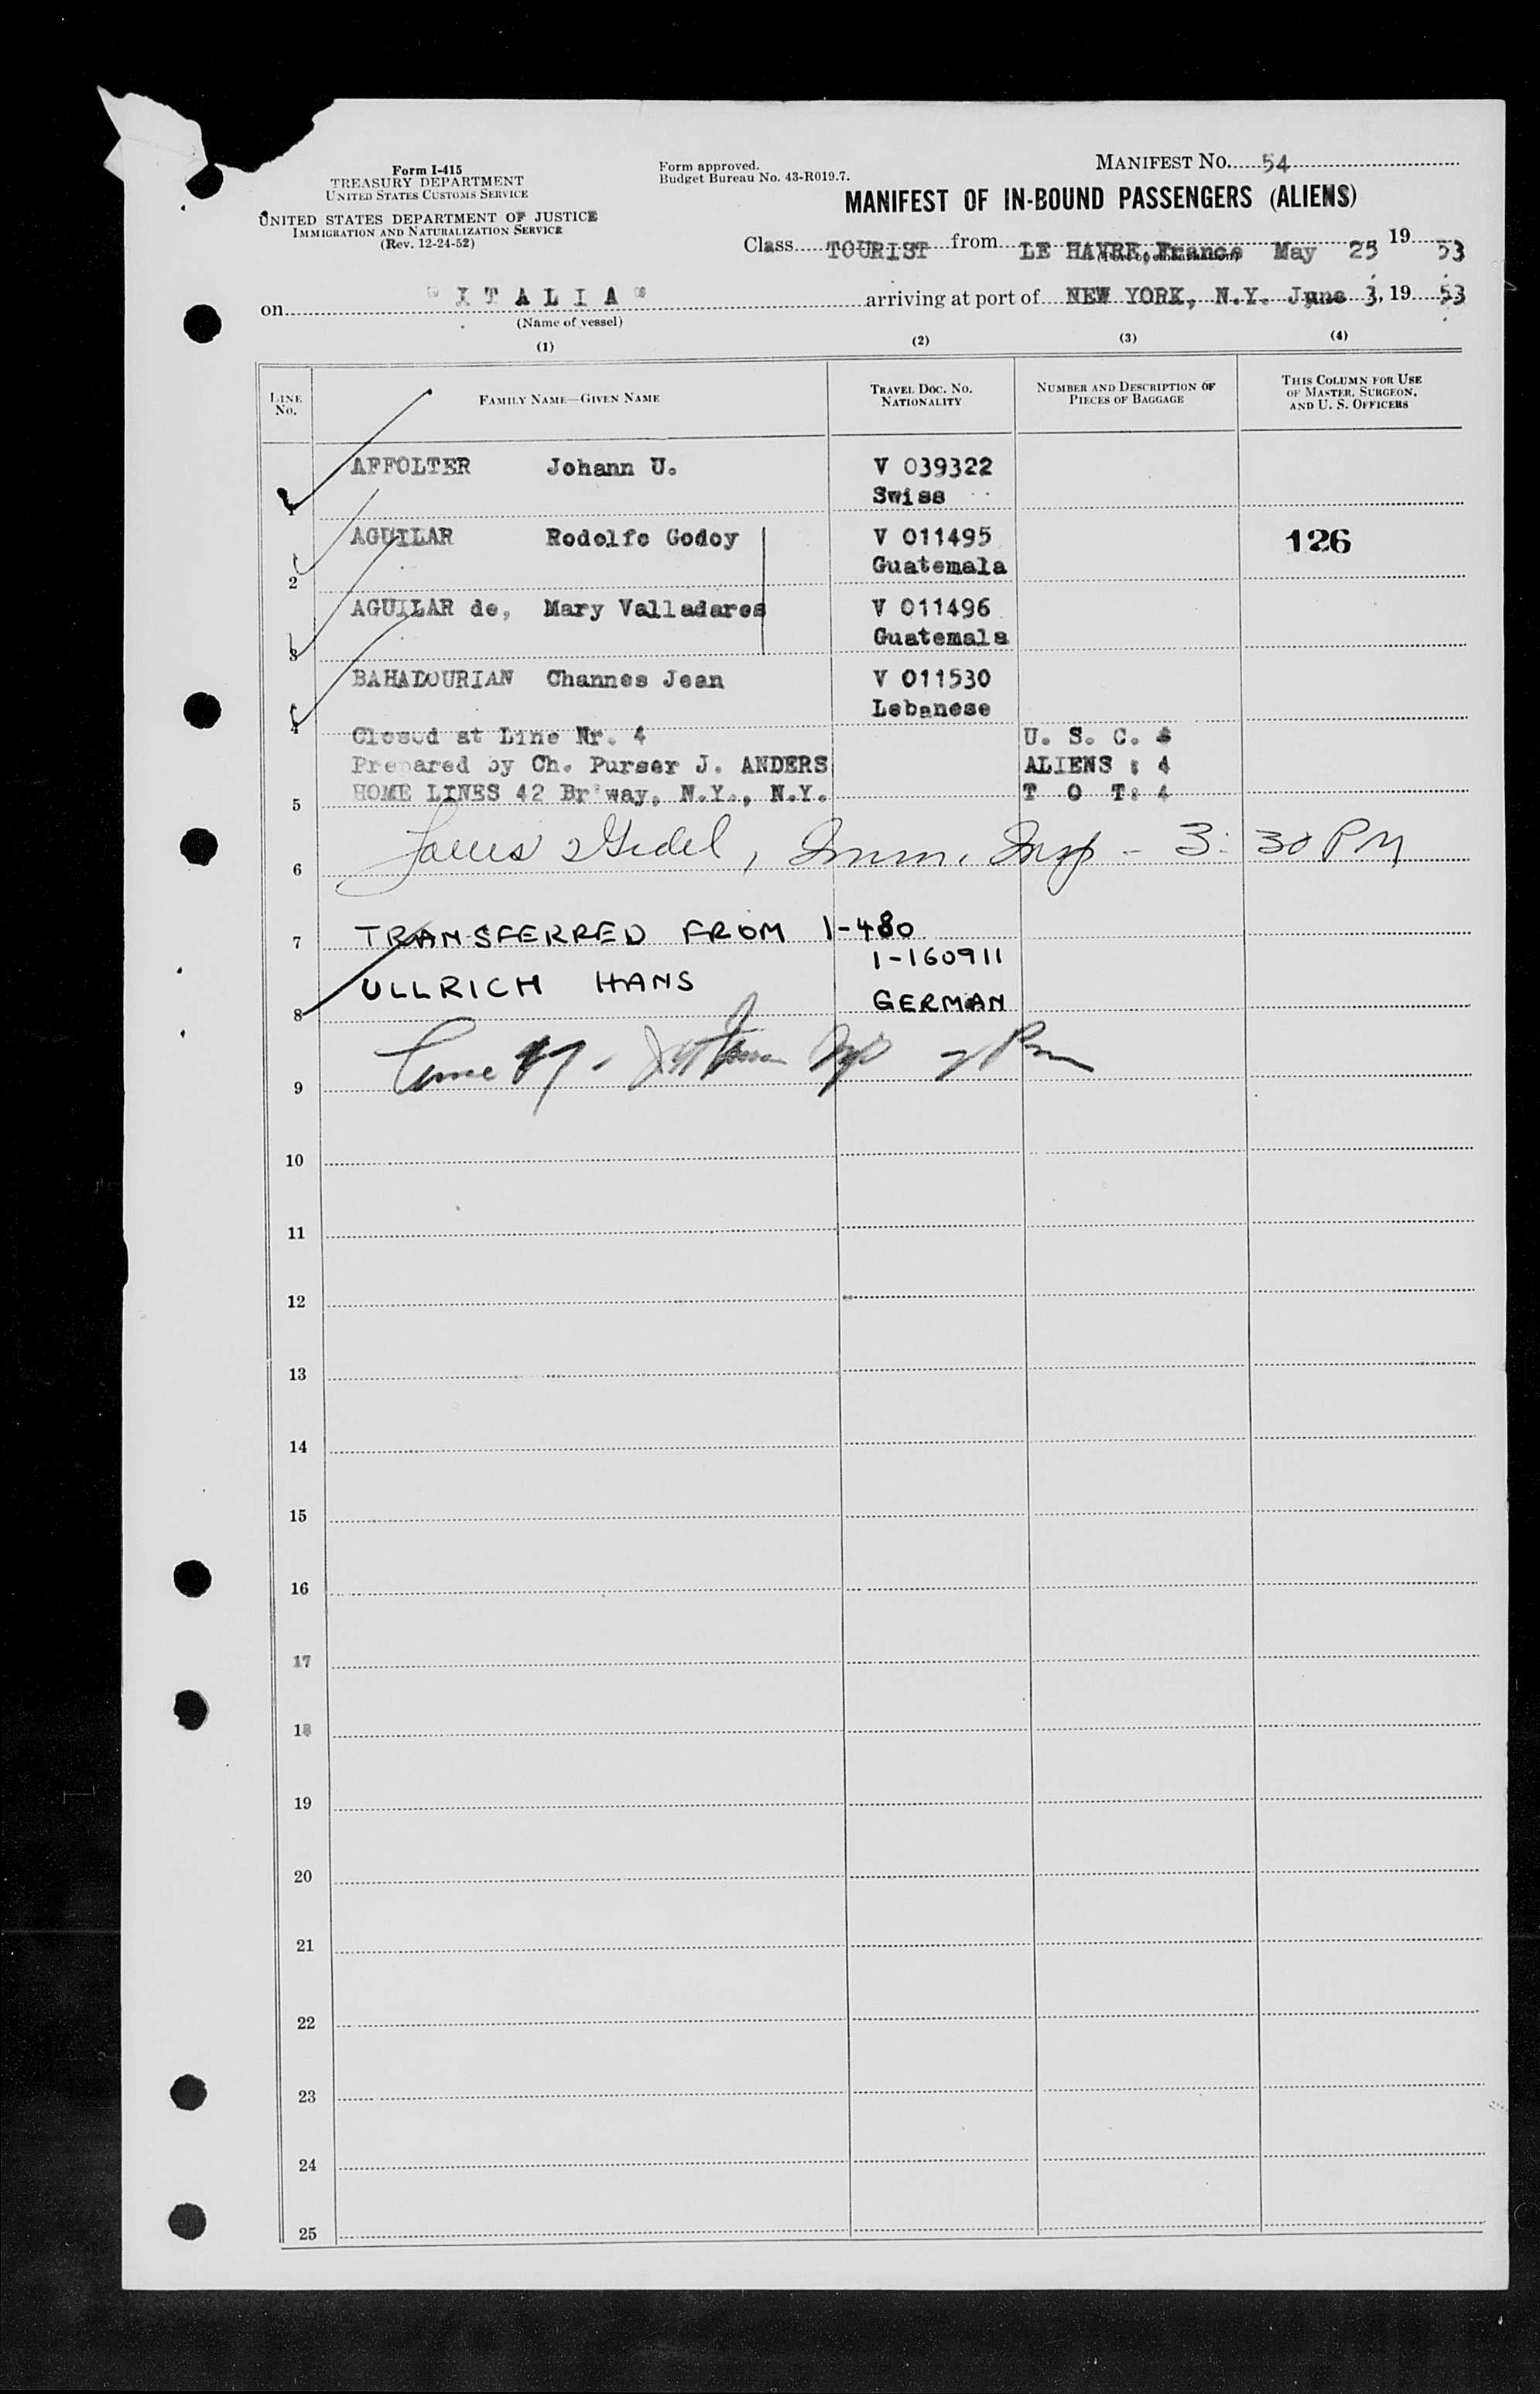 Form I-415
TREASURY DEPARTMENT
UNITED STATES CUSTOMS SERVICE
UNITED STATES DEPARTMENT OF JUSTICE
IMMIGRATION AND NATURALIZATION SERVICE
(Rev. 12-24-52)
Form approved.
Budget Bureau No. 43-R019.7.
MANIFEST NO. 54
MANIFEST OF IN-BOUND PASSENGERS (ALIENS)
Class TOURIST from LE HAVRE, France May 25 19 53
(Port of embarkation)
on "ITALIA" arriving at port of NEW YORK, N.Y. June 3, 19 53
(Name of vessel)
(1) (2) (3) (4)
LINE NO. FAMILY NAME—GIVEN NAME TRAVEL DOC. NO. NATIONALITY NUMBER AND DESCRIPTION OF PIECES OF BAGGAGE THIS COLUMN FOR USE OF MASTER, SURGEON, AND U. S. OFFICERS
1 AFFOLTER Johann U. V 039322
Swiss
2 AGUILAR Rodolfo Godoy V 011495 126
Guatemala
3 AGUILAR de, Mary Valladares V 011496
Guatemala
4 BAHADOURIAN Channes Jean V 011530
Lebanese
Closed at Line Nr. 4 U. S. C.
Prepared by Ch. Purser J. ANDERS ALIENS : 4
5 HOME LINES 42 Br'way, N.Y., N.Y. T O T: 4
6 Imm. Insp - 3:30 PM
7 TRANSFERRED FROM 1-480
1-160911
8 ULLRICH HANS GERMAN
9
10
11
12
13
14
15
16
17
18
19
20
21
22
23
24
25